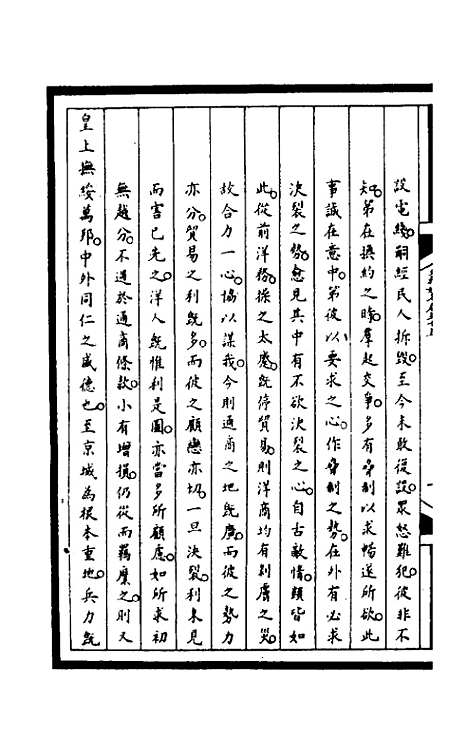 設電綫。嗣經民人拆毀。至今未敢復設。眾怒難犯。彼非不
知。第在換約之時。羣起交爭。多有挾制以求暢遂所欲。此
事誠在意中。第彼以要求之心。作挾制之勢。在外有必求
決裂之勢。愈見其中有不欲決裂之心。自古敵情。類皆如
此。從前洋務。操之太蹙。旣停貿易。則洋商均有剝膚之災。
故合力一心。協以謀我。今則通商之地旣廣。而彼之勢力
亦分。貿易之利旣多。而彼之顧戀亦切。一旦決裂。利未見
而害已先之。洋人旣惟利是圖。亦當多所顧慮。如所求初
無越分。不過於通商條款。小有增損。仍從而羈縻之。則又
皇上撫綏萬邦。中外同仁之盛德也。至京城為根本重地。兵力旣